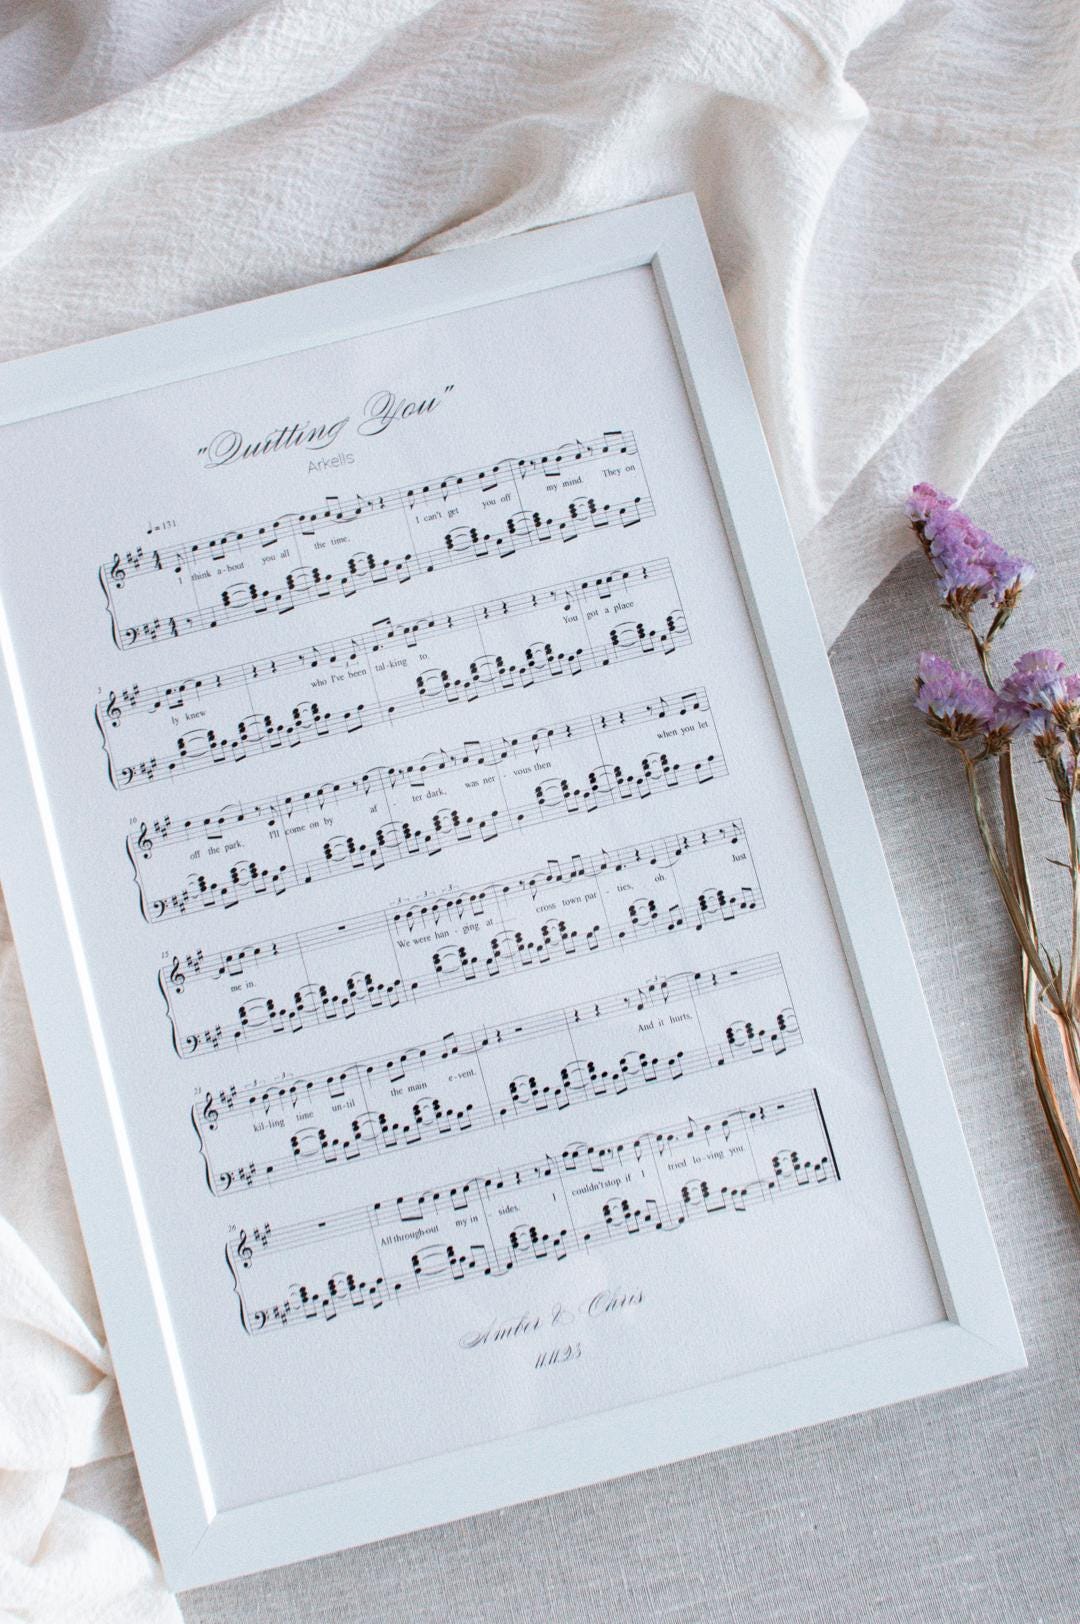 "Quitting You"
Arkells
♩=131
I think a-bout you all the time, I can't get you off my mind. They on
3
ly knew who I've been tal-king to. You got a place
10
off the park, I'll come on by af - ter dark, was ner - vous then when you let
15
3 3
me in. We were han - ging at cross town par - ties, oh. Just
21
3 3 3
kil-ling time un-til the main e-vent. And it hurts,
26
All through-out my in - sides. I couldn't stop if I tried lo-ving you.
Amber & Chris
11.11.23